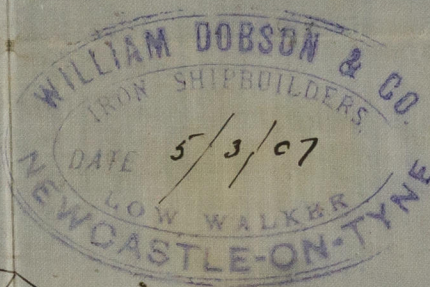 WILLIAM DOBSON & CO.
IRON SHIPBUILDERS.
DATE 5/3/07
LOW WALKER
NEWCASTLE-ON-TYNE